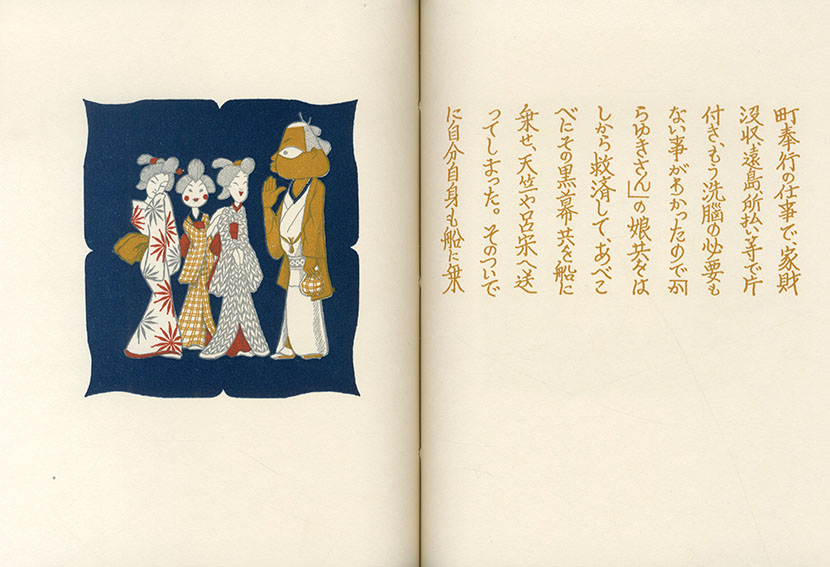 町奉行の仕事で、家財
没収、遠島、所払い等で片
付き、もう洗脳の必要も
ない事がわかったので「か
らゆきさん」の娘共をは
しから救済して、あべこ
べにその黒幕共を船に
乗せ、天竺や呂宋へ送
ってしまった。そのついで
に自分自身も船に乗